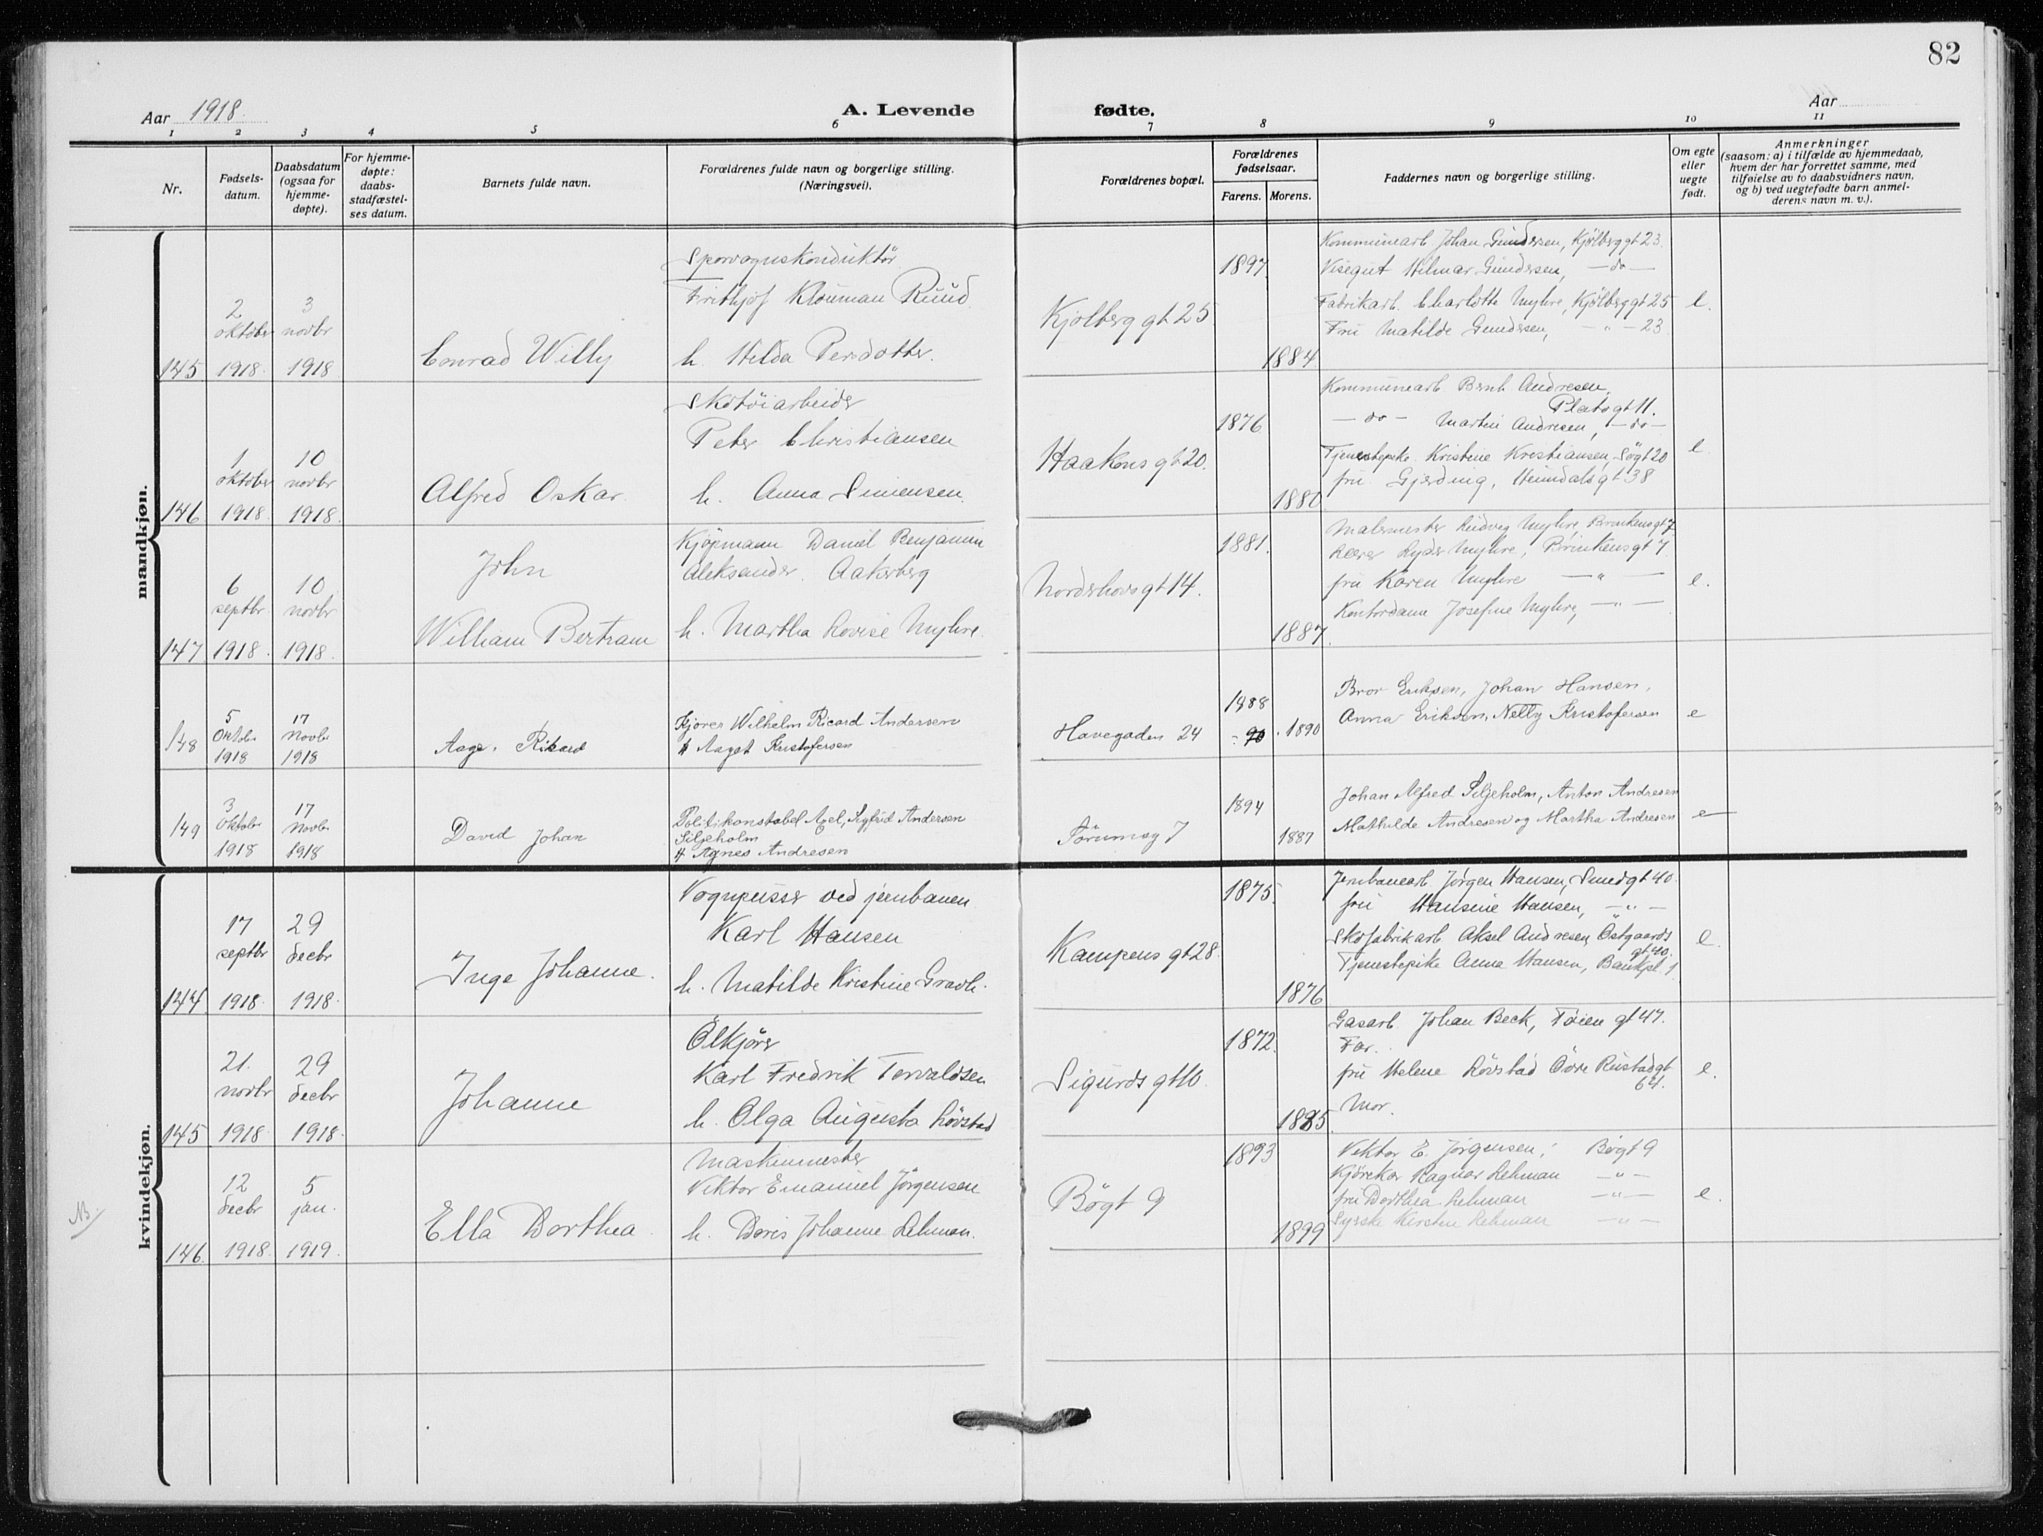 82
Aar 1918. A. Levende fødte. Aar
1 2 3 4 5 6 7 8 9 10 11
Nr.
Fødsels-
datum.
Daabsdatum
(ogsaa for
hjemme-
døpte).
For hjemme-
døpte:
daabs-
stadfæstel-
ses datum.
Barnets fulde navn.
Forældrenes fulde navn og borgerlige stilling.
(Næringsvei).
Forældrenes bopæl.
Forældrenes
fødselsaar.
Farens. Morens.
Faddernes navn og borgerlige stilling.
Om egte
eller
uegte
født.
Anmerkninger
(saasom: a) i tilfælde av hjemmedaab,
hvem der har forrettet samme, med
tilføielse av to daabsvidners navn,
og b) ved uegtefødte barn anmel-
derens navn m. v.).
mandkjøn.
145
2
oktober
1918.
3
novbr
1918
Conrad Willy
Sporvognskonduktör
Frithjof Klouman Ruud
h. Hilda Persdotter.
Kjølberg gt 25
1897.
1884
Kommunearb Johan Gundersen, Kjølberg gt 23.
Visegut Hilmar Gundersen, — do —
Fabrikarb. Charlotte Myhre, Kjølberg gt 25
Fru Matilde Gundersen, - " - 23.
e.
146
1
oktober
1918
10
novbr
1918.
Alfred Oskar.
Skotöiarbeider
Peter Christiansen
h. Anna Simensen.
Haakons gt 20.
1876
1880
Kommunearb Bernh Andresen,
Platogt 11.
— do — Martin Andresen, — do —
Tjenestepike Kristine Kristiansen, Søgt 20
fru Gjerding, Heimdalsgt 38
e.
147
6
septbr
1918.
10
novbr
1918.
John
William Bertram
Kjøpmann Daniel Benjamin
Aleksander Aakerberg
h. Martha Lovise Myhre.
Nordshovsgt 14.
1881.
1887.
Malermester Ludvig Myhre, Brinkens gt 7
Lærer Lyder Myhre, Brinkens gt 7
fru Karen Myhre — " —
Kontordame Josefine Myhre, — " —
e.
148
5
Oktober
1918
17
Novbr
1918
Aage Rikard
Kjører Wilhelm Ricard Andersen
H Aagot Kristofersen
Havegaden 24
1888
90
1890
Bror Eriksen, Johan Hansen,
Anna Eriksen, Nelly Kristofersen
e
149
3
Oktober
1918
17
Novbr
1918
David Johan
Politikonstabel Axel, Sigfrid Andersen
Siljeholm
H Agnes Andresen
1894
1887
Johan Alfred Siljeholm, Anton Andresen
Mathilde Andresen og Martha Andresen
e
kvindekjøn.
144
17
septbr
1918.
29
decbr
1918.
Inga Johanne.
Vognpusser ved jernbanen
Karl Hansen
h. Matilde Kristine Gravli.
Kampens gt 28.
1875.
1876
Jernbanearb Jørgen Hansen, Smedgt 40.
fru Hansine Hansen, — " —
Skofabrikarb Aksel Andresen, Östgaards
gt 40.
Tjenestepike Anna Hansen, Bankpl. 1
e.
145
21.
novbr
1918.
29
decbr
1918.
Johanne
Ölkjører
Karl Fredrik Torvaldsen
h. Olga Augusta Lövstad
Sigurds gt 10.
1872.
1885.
Gasarb. Johan Beck, Tøien gt 47.
Far.
fru Helene Lövstad Övre Rustadgt
64.
Mor.
e.
NB/
146.
12
decbr
1918.
5
jan.
1919.
Ella Dorthea.
Maskinmester
Viktor Emanuel Jörgensen
h. Doris Johanne Lehman.
Bögt 9
1893
1899
Viktor E. Jørgensen, Bøgt 9
Ragnar Lehman — " —
fru Dorthea Lehman — " —
Syerske Kirsten Lehman — " —
e.